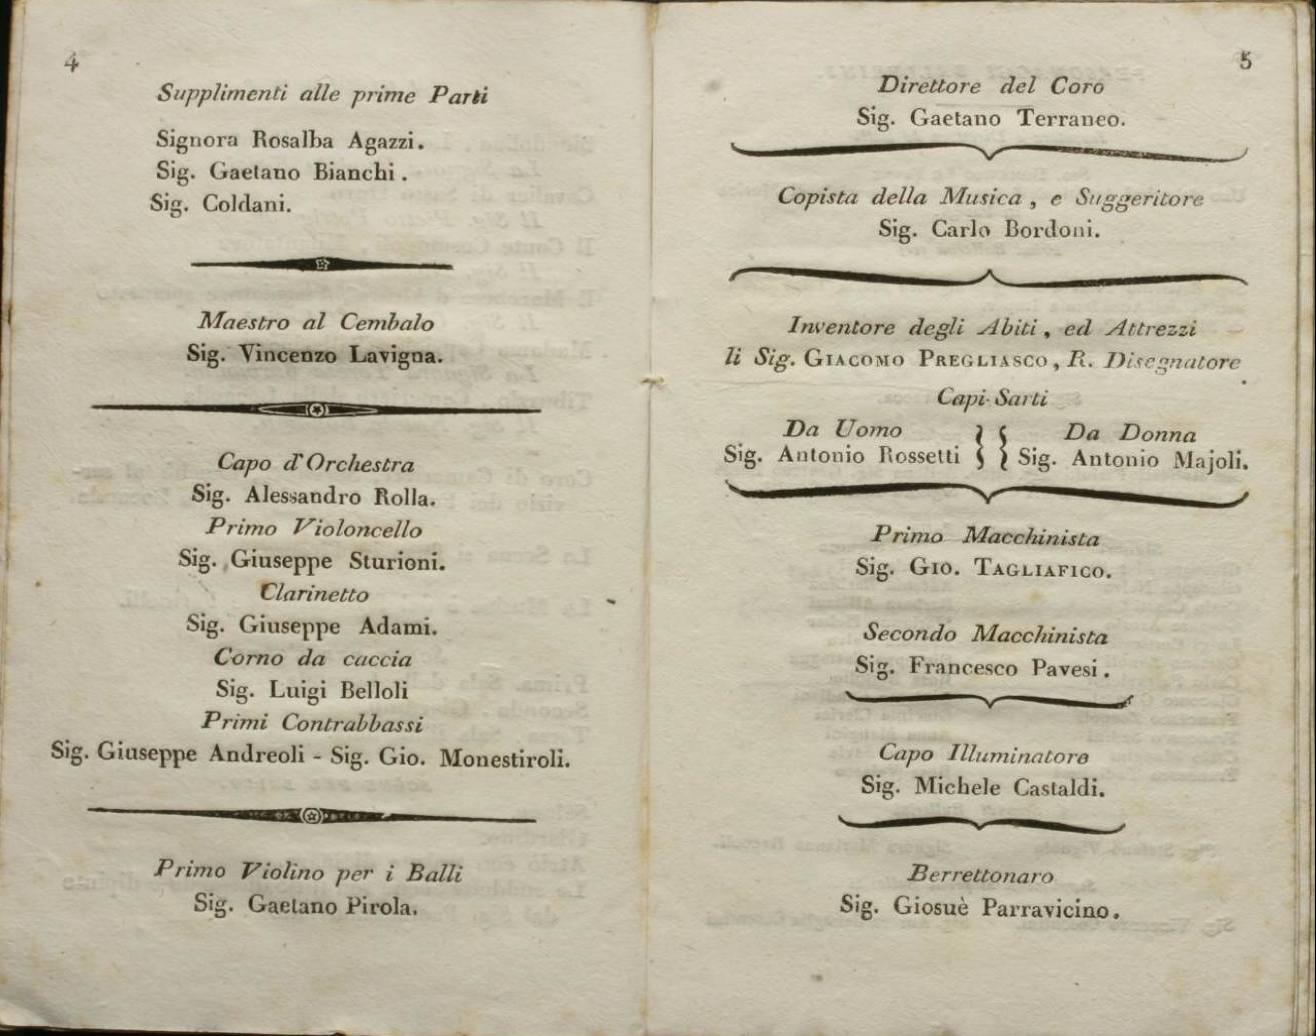 4
Supplimenti alle prime Parti
Signora Rosalba Agazzi.
Sig. Gaetano Bianchi.
Sig. Coldani.
Maestro al Cembalo
Sig. Vincenzo Lavigna.
Capo d'Orchestra
Sig. Alessandro Rolla.
Primo Violoncello
Sig. Giuseppe Sturioni.
Clarinetto
Sig. Giuseppe Adami.
Corno da caccia
Sig. Luigi Belloli
Primi Contrabbassi
Sig. Giuseppe Andreoli - Sig. Gio. Monestiroli.
Primo Violino per i Balli
Sig. Gaetano Pirola.
5
Direttore del Coro
Sig. Gaetano Terraneo.
Copista della Musica, e Suggeritore
Sig. Carlo Bordoni.
Inventore degli Abiti, ed Attrezzi
li Sig. GIACOMO PREGLIASCO, R. Disegnatore
Capi-Sarti
Da Uomo } { Da Donna
Sig. Antonio Rossetti } { Sig. Antonio Majoli.
Primo Macchinista
Sig. GIO. TAGLIAFICO.
Secondo Macchinista
Sig. Francesco Pavesi.
Capo Illuminatore
Sig. Michele Castaldi.
Berrettonaro
Sig. Giosuè Parravicino.